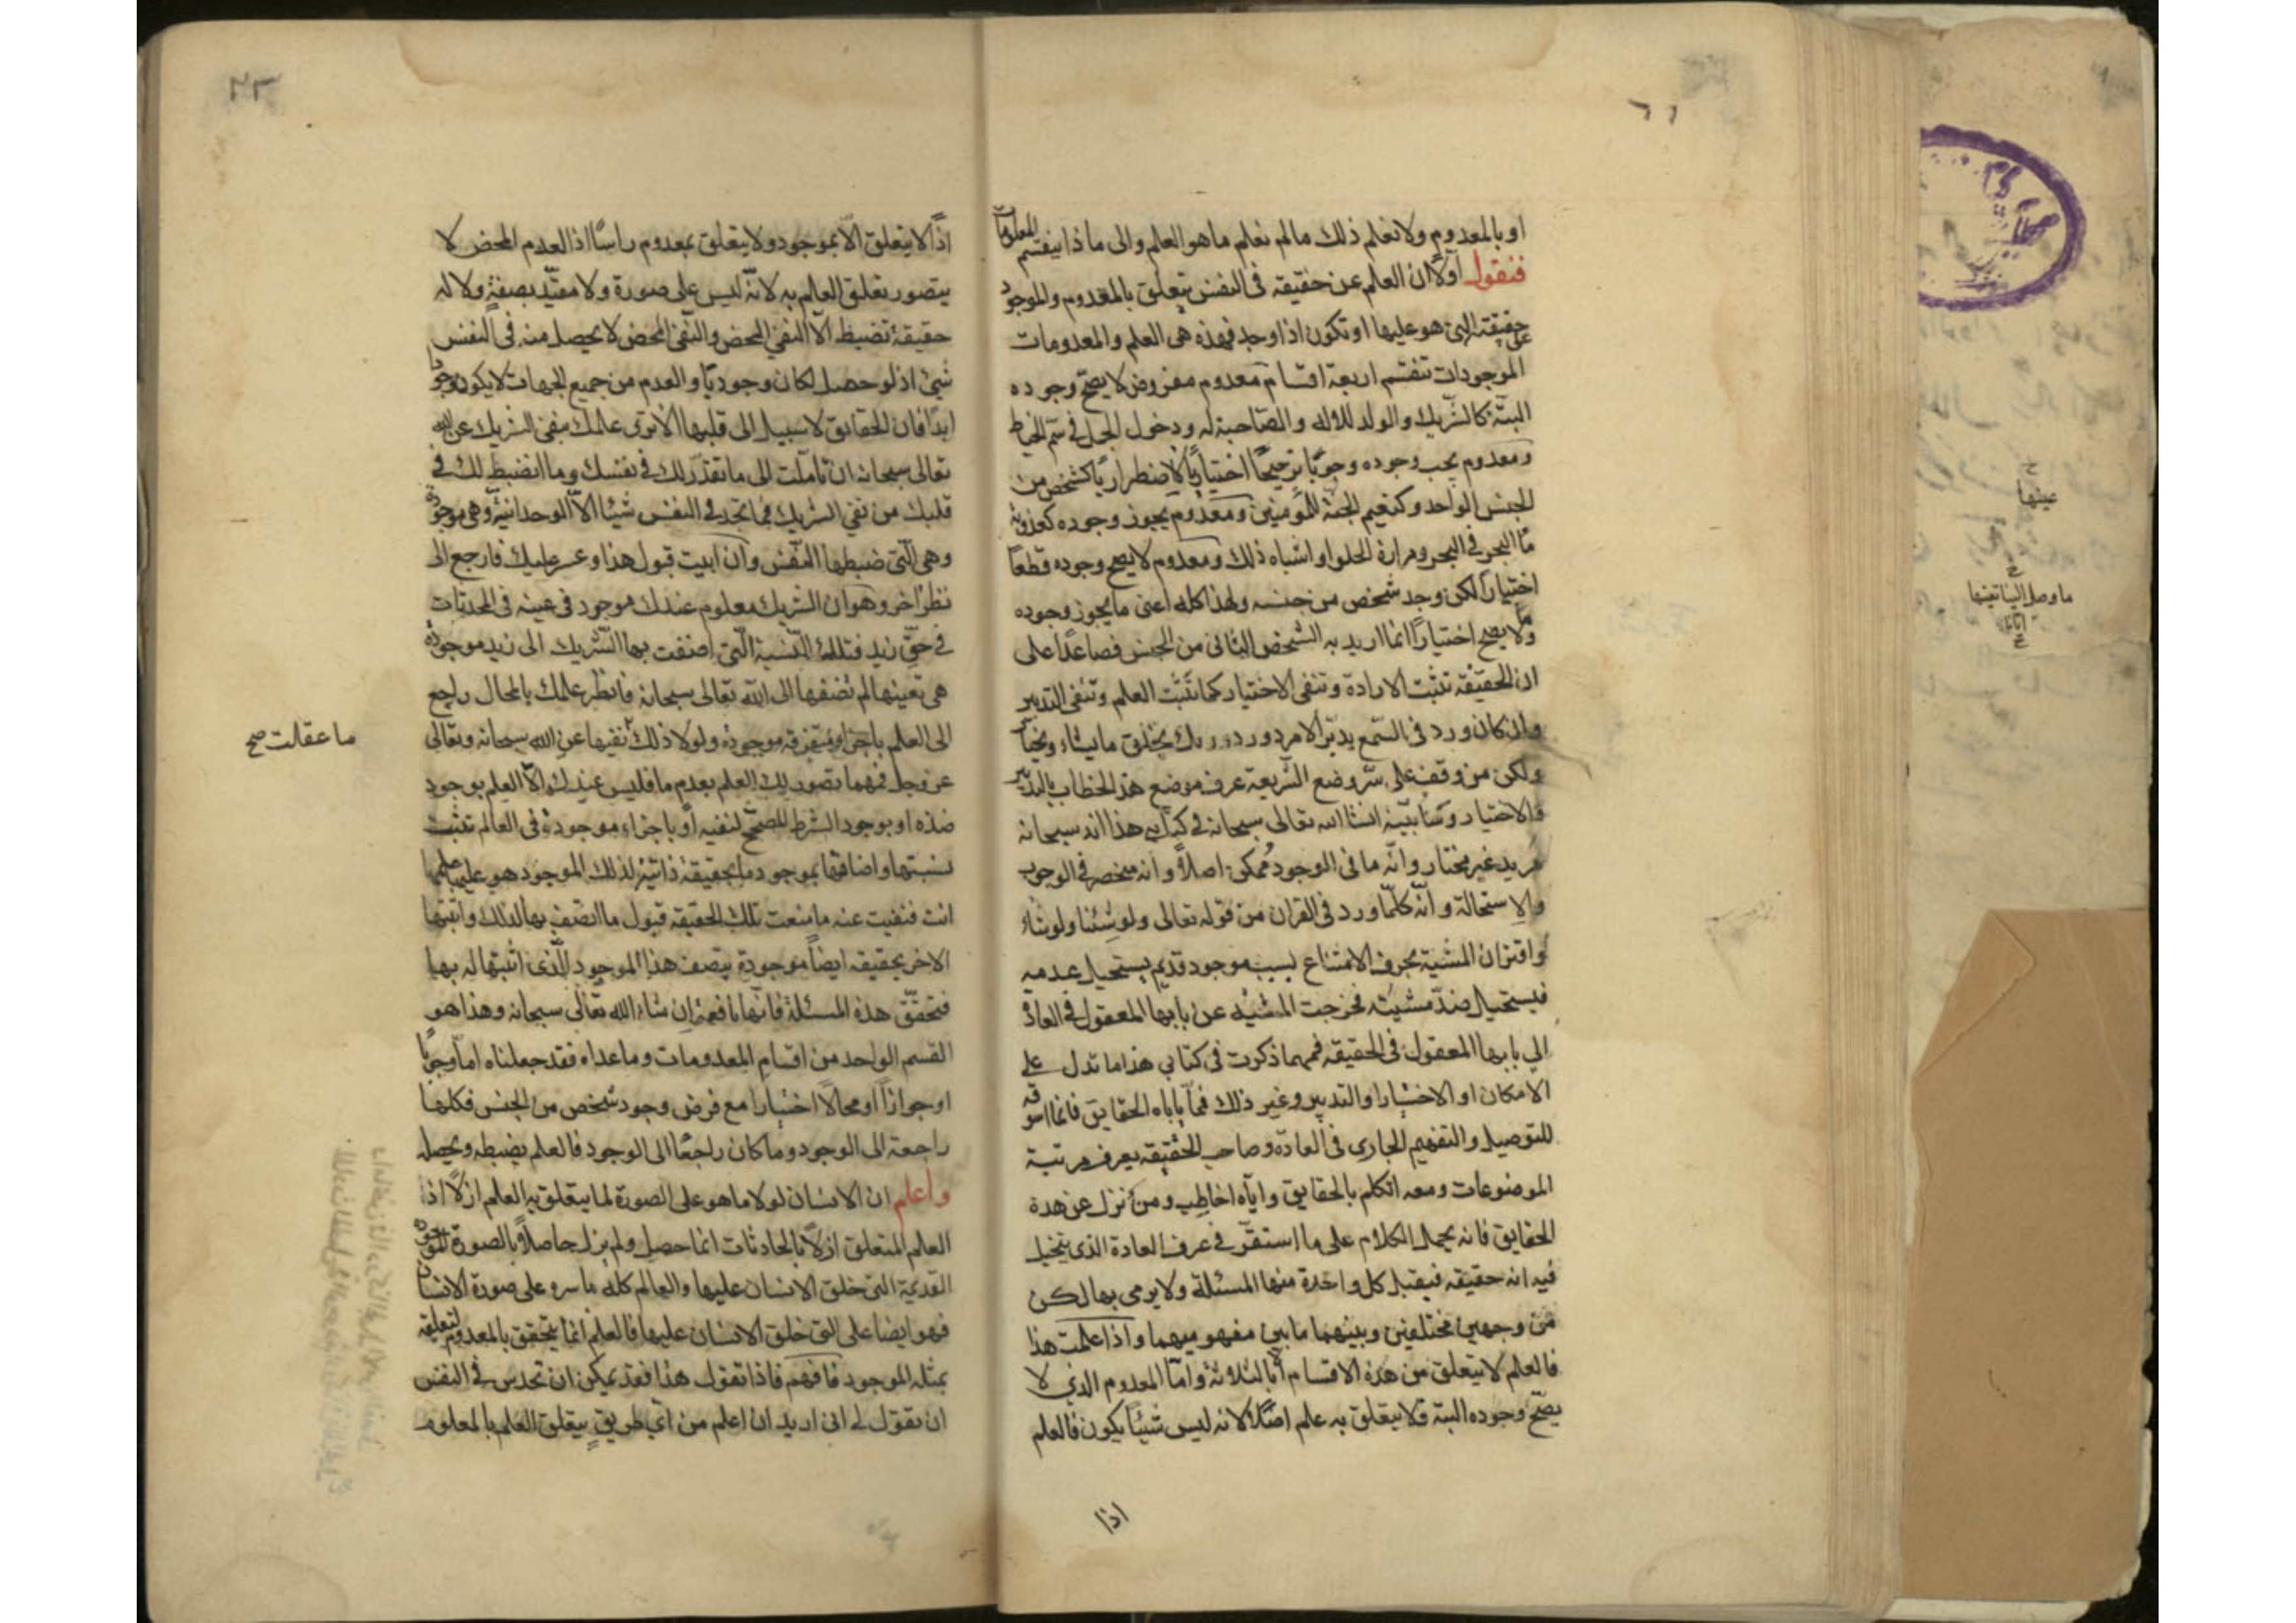 او بالمعدوم ولا نعلم ذلك مالم نعلم ما هو العلم والى ما ذا ينقسم المعلومات
فنقول اولا ان العلم عن حقيقه فى النفس يتعلق بالمعدوم والموجود
على حقيقته التى هو عليها او تكون اذا وجد فهذه هى العلم والمعدومات
الموجودات تنقسم اربعة اقسام معدوم مفروض لا يصح وجوده
البتة كالشريك والولد للاله والصاحبة له ودخول الجمل فى سم الخياط
ومعدوم يجب وجوده وجوبا ترجيحا اختياريا لا اضطراريا كشخص من
الجنس الواحد وكنعيم الجنة للمؤمنين ومعدوم يجوز وجوده كعذوبة
ما البحر فى البحر ومرارة الحلو او اشباه ذلك ومعدوم لا يصح وجوده قطعا
اختيارا لكن وجد شخص من جنسه ولهذا كله اعنى ما يجوز وجوده
وما لا يصح اختيارا انما اريد به الشخص الثانى من الجنس فصاعدا على
ان الحقيقة تثبت الارادة وتنفى الاختيار كما تثبت العلم وتنفى التدبير
وان كان ورد فى السمع يدبر الامر وورد وربك يخلق ما يشاء ويختار
ولكن من وقف على سر وضع الشريعة عرف موضع هذا الخطاب بالتدبير
والاختيار وسنابينه انشا الله تعالى سبحانه فى كتابى هذا انه سبحانه
مريد غير مختار وانه ما فى الوجود ممكن اصلا وانه منحصر فى الوجوب
والاستحالة وانه كلما ورد فى القران من قوله تعالى ولو شئنا ولو شاء
واقتران المشية بحرف الامتناع بسبب موجود قديم يستحيل عدمه
فيستحيل ضد مشيته فخرجت المشية عن بابها المعقول فى العادة
الى بابها المعقول فى الحقيقه فمهما ذكرت فى كتابى هذا ما تدل على
الامكان او الاختيار او التدبير وغير ذلك فما ياباه الحقايق فانما اسوقه
للتوصيل والتفهيم الجارى فى العادة وصاحب الحقيقه يعرف مرتبة
الموضوعات ومعه اتكلم بالحقايق واياه اخاطب ومن نزل عن هذة
الحقايق فانه يحمل الكلام على ما استقر فى عرف العادة الذى يتخيل
فيه انه حقيقه فيقبل كل واحدة منها المسئلة ولا يرمى بها لكن
من وجهين مختلفين وبينهما ما بين مفهوميهما واذا علمت هذا
فالعلم لا يتعلق من هذة الاقسام الا بالثلاثة واما المعدوم الذى لا
يصح وجوده البتة فلا يتعلق به علم اصلا لانه ليس شيئا يكون فالعلم
اذا
٢٢
اذا لا يتعلق الا بموجود ولا يتعلق بمعدوم راسا اذ العدم المحض لا
يتصور تعلق العلم به لانه ليس على صورة ولا مقيد بصفة ولا له
حقيقة تضبط الا النفى المحض والنفى المحض لا يحصل منه فى النفس
شيئ اذ لو حصل لكان وجوديا والعدم من جميع الجهات لا يكون وجودا
ابدا فان الحقايق لا سبيل الى قلبها الا ترى علمك بنفى الشريك عن الله
تعالى سبحانه ان تاملت الى ما تقدر لك فى نفسك وما انضبط لك فى
قلبك من نفى الشريك فما تجد فى النفس شيئا الا الوحدانية وهى موجودة
وهى التى ضبطها النفس وان ابيت قبول هذا وعسر عليك فارجع الى
نظر اخر وهو ان الشريك معلوم عندك موجود فى عينه فى المحدثات
فى حق زيد فتلك النسبة التى اضفت بها الشريك الى زيد موجودة
هى تعينها لم تضفها الى الله تعالى سبحانه فانظر علمك بالمحال راجع
الى العلم باجزاء متفرقه موجودة ولولا ذلك نفيها عن الله سبحانه وتعالى
ما عقلت صح
عز وجل فمهما تصور لك العلم بعدم ما فليس عندك الا العلم بوجود
ضده او بوجود الشرط المصحح لنفيه او باجزاء موجودة فى العالم تثبت
نسبتها واضافتها بموجود ما بحقيقة ذاتية لذلك الموجود هو عليها علمها
انت فنفيت عنه ما منعت تلك الحقيقه قبول ما اتصف بها لذلك واثبتها
الاخر بحقيقه ايضا موجودة يتصف هذا الموجود الذى اثبتها له بها
فتحقق هذه المسئلة فانها نافعة ان شاء الله تعالى سبحانه وهذا هو
القسم الواحد من اقسام المعدومات وما عداه فقد جعلناه اما وجوبا
او جوازا او محالا اختيارا مع فرض وجود شخص من الجنس فكلها
راجعة الى الوجود وما كان راجعا الى الوجود فالعلم يضبطه ويحصله
واعلم ان الانسان لولا ما هو على الصورة لما يتعلق به العلم ازلا اذا
العلم المتعلق ازلا بالحادثات انما حصل ولم يزل حاصلا بالصورة الموجودة
القديمة التى خلق الانسان عليها والعالم كله باسره على صورة الانسان
فهو ايضا على التى خلق الانسان عليها فالعلم انما يتحقق بالمعدوم لتعلقه
بمثله الموجود فافهم فاذا تقول هذا فقد يمكن ان تحدس فى النفس
ان تقول لى انى اريد ان اعلم من اى طريق يتعلق العلم بالمعلوم
عينها
ما وصل الينا تعينها